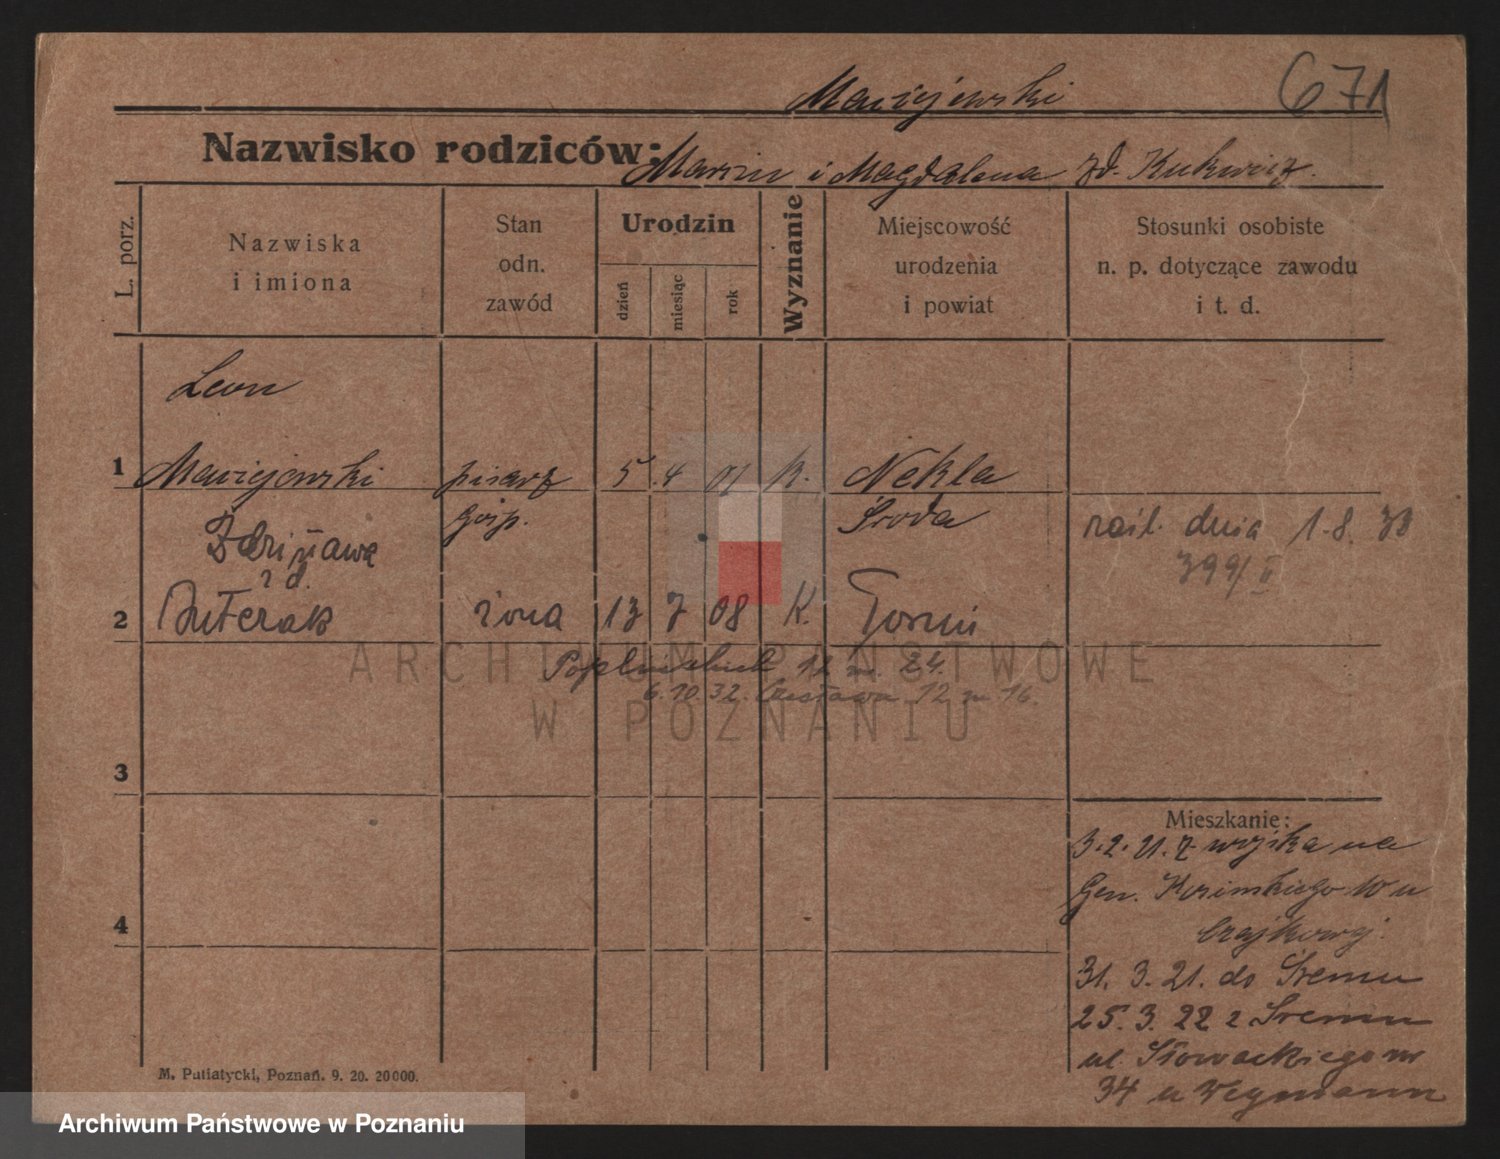 Maciejewski
671
Nazwisko rodziców: Marcin i Magdalena zd.
L. porz.
Nazwiska
i imiona
Stan
odn.
zawód
Urodzin
dzień
miesiąc
rok
Wyznanie
Miejscowość
urodzenia
i powiat
Stosunki osobiste
n. p. dotyczące zawodu
i t. d.
Leon
1 Maciejewski pisarz 5. 4 01 K. Nekla
gosp. Środa
dnia 1. 8. 30
399/II
zd.
2 żona 13 7 08 K. Toruń
12 m. 24.
6. 10. 32. Czesława 12 m 16.
ARCHIWUM PAŃSTWOWE
W POZNANIU
3
4
Mieszkanie:
3. 2. 21. z wojska na
Gen. 10 u
31. 3. 21. do Śremu
25. 3. 22 z Śremu
ul. Słowackiego nr
34 u Weymann
M. Putiatycki, Poznań. 9. 20. 20000.
Archiwum Państwowe w Poznaniu